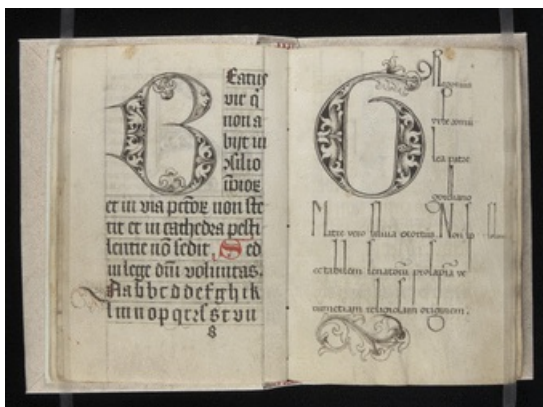 B Eatus
vir q̄
non a
bijt in
ɔsilio
ip̄ioꝝ
et in via pctoꝝ non ste
tit et in cathedra pesti
lentie nō sedit, Sed
in lege dn̄i voluntas.
Aabbcddefghik
G Regorius
vrbe romu
lea patre
gordiano
Matre vero siluia exortus. Non
senatoru prosapia ve
religiosam originem.